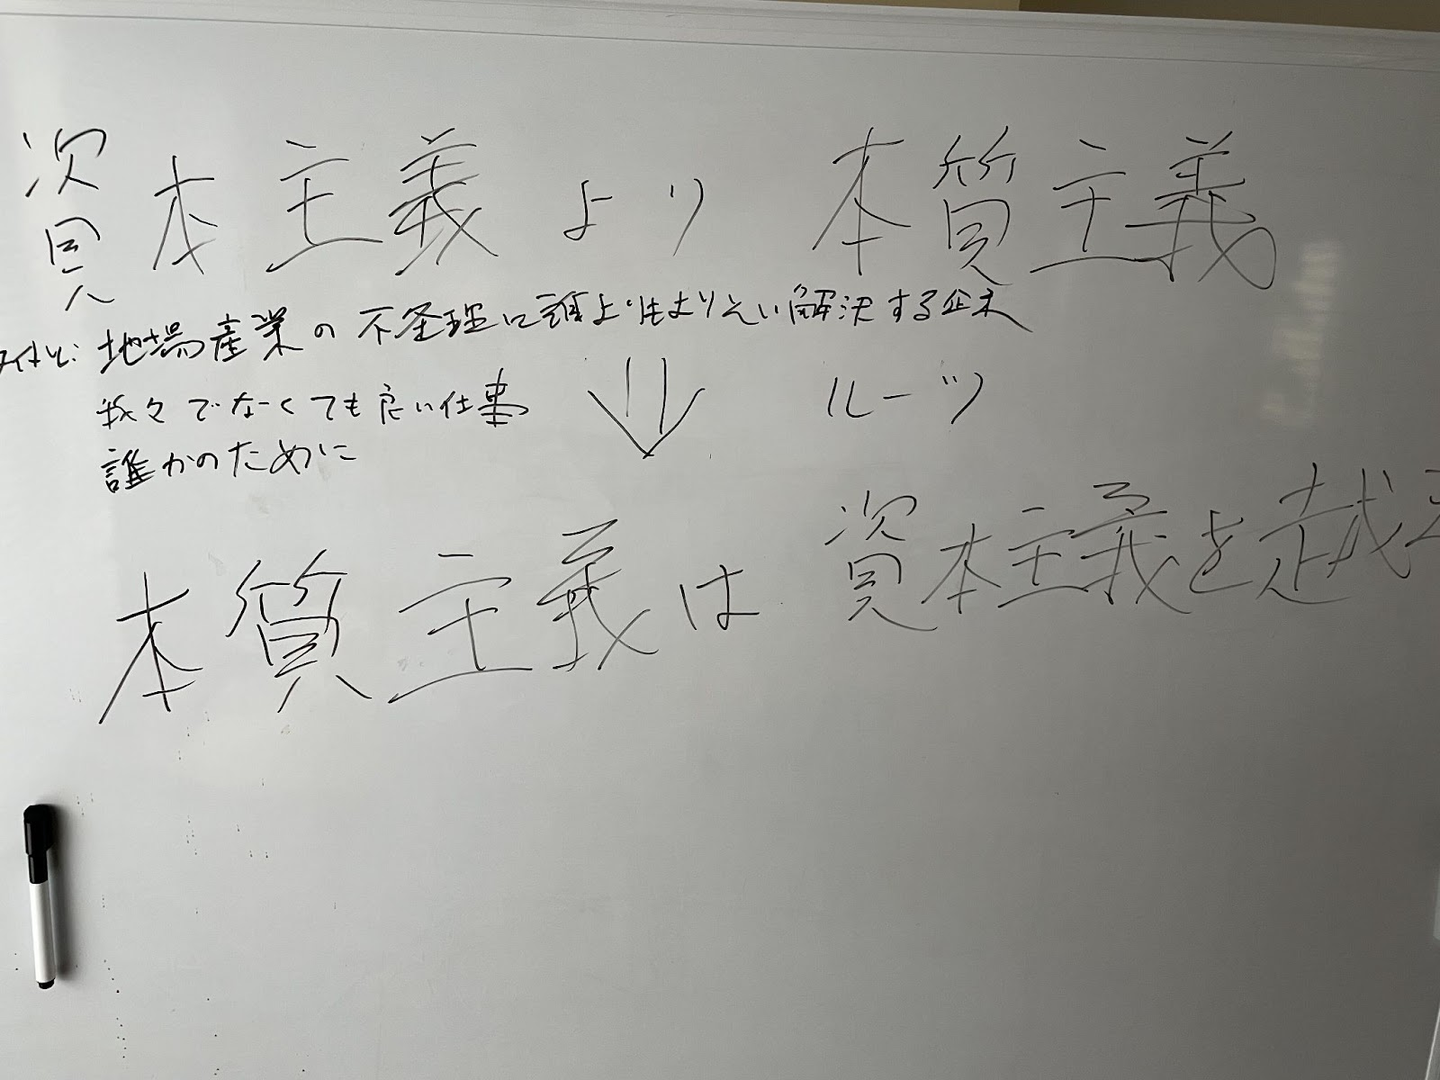 資本主義より 本質主義
地場産業の不条理に誰よりも 解決する企業
我々でなくても良い仕事
誰かのために
ルーツ
本質主義は 資本主義を越え